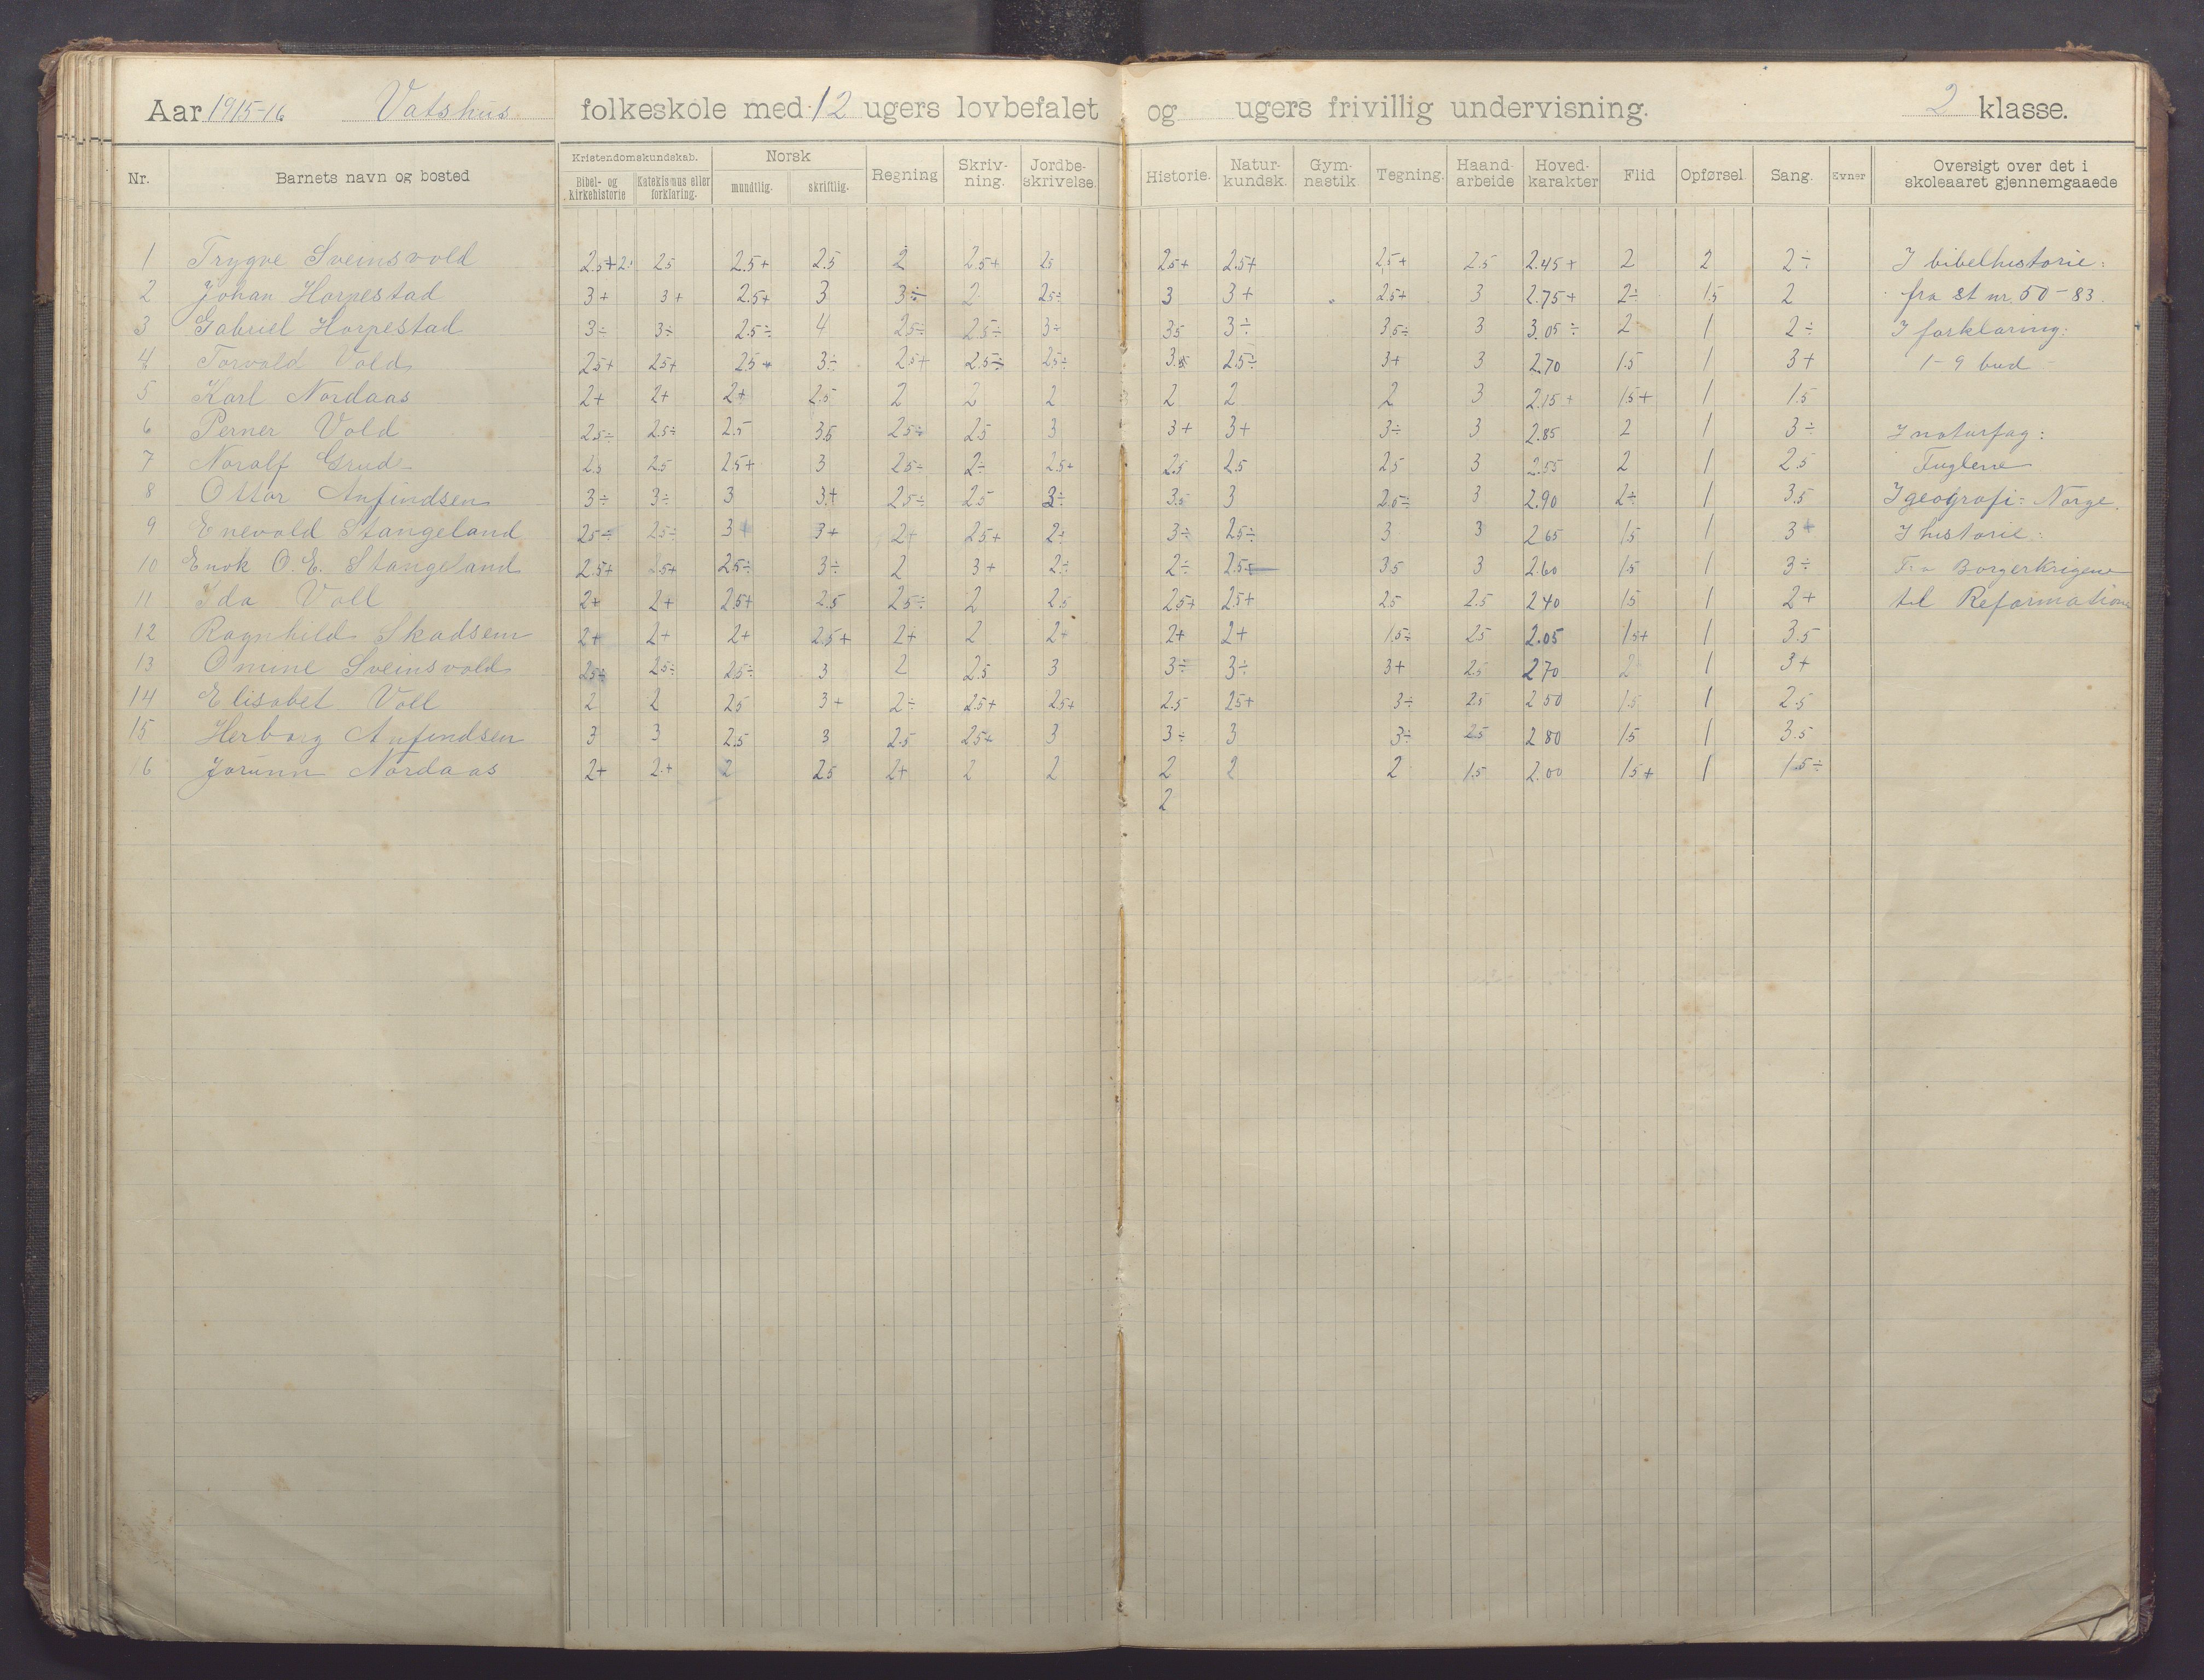 Aar 1915-16 Vatshus folkeskole med 12 ugers lovbefalet og ugers frivillig undervisning. 2 klasse.
Nr. Barnets navn og bosted Kristendomskundskab. Bibel- og kirkehistorie Katekismus eller forklaring. Norsk mundtlig. skriftlig. Regning Skriv-ning. Jordbe-skrivelse. Historie. Natur-kundsk. Gym-nastik Tegning. Haand-arbeide Hoved-karakter Flid Opførsel Sang. Evner Oversigt over det i skoleaaret gjennemgaaede
1 Trygve Sveinsvold 2.5+ 25 2.5+ 2.5 2 25+ 25 25+ 2.5+ 25+ 2.5 2.45+ 2 2 2÷ I bibelhistorie:
2 Johan Horpestad 3+ 3+ 2.5+ 3 3÷ 2 25÷ 3 3+ 25+ 3 2.75+ 2÷ 15 2 fra st nr. 50-83.
3 Gabriel Horpestad 3÷ 3÷ 2.5÷ 4 25÷ 2.5÷ 3÷ 35 3÷ 35÷ 3 3.05÷ 2 1 2÷ I forklaring:
4 Torvald Vold 25+ 25+ 25+ 3÷ 25+ 2.5÷ 25÷ 3.5 25÷ 3+ 3 2.70 1.5 1 3+ 1-9 bud
5 Karl Nordaas 2+ 2+ 2+ 2.5 2 2 2 2 2 2 3 2.15+ 15+ 1 1.5
6 Perner Vold 25÷ 2.5÷ 2.5 3.5 25÷ 25 3 3+ 3+ 3÷ 3 2.85 2 1 3÷ I naturfag:
7 Noralf Grude 2.5 25 25+ 3 25÷ 2÷ 25+ 25 2.5 25 3 2.55 2 1 2.5 Fuglene
8 Ottar Anfindsen 3÷ 3÷ 3 3+ 25÷ 25 3÷ 3.5 3 2.5÷ 3 2.90 2÷ 1 3.5 I geografi: Norge.
9 Enevald Stangeland 25÷ 25÷ 3+ 3+ 2+ 25+ 2÷ 3÷ 25÷ 3 3 2.65 15 1 3+ I historie:
10 Enok O. E. Stangeland 2.5+ 2.5+ 25÷ 3÷ 2 3+ 2÷ 2÷ 2.5÷ 35 3 2.60 1.5 1 3÷ Fra Borgerkrigene
11 Ida Voll 2+ 2+ 25+ 2.5 25÷ 2 25 25+ 25+ 25 2.5 2.40 15 1 2+ til Reformationen
12 Ragnhild Skadsem 2+ 2+ 2+ 2.5+ 2+ 2 2+ 2+ 2+ 1.5÷ 25 2.05 15+ 1 3.5
13 Omine Sveinsvold 25÷ 25÷ 25÷ 3 2 2.5 3 3÷ 3÷ 3+ 25 2.70 2 1 3+
14 Elisabet Voll 2 2 25 3+ 2÷ 25+ 25+ 2.5 25+ 3÷ 25 2.50 15 1 2.5
15 Herborg Anfindsen 3 3 2.5 3 2.5 25+ 3 3÷ 3 3÷ 25 2.80 15 1 3.5
16 Jorunn Nordaas 2+ 2+ 2 25 2+ 2 2 2 2 2 1.5 2.00 15+ 1 1.5÷
2